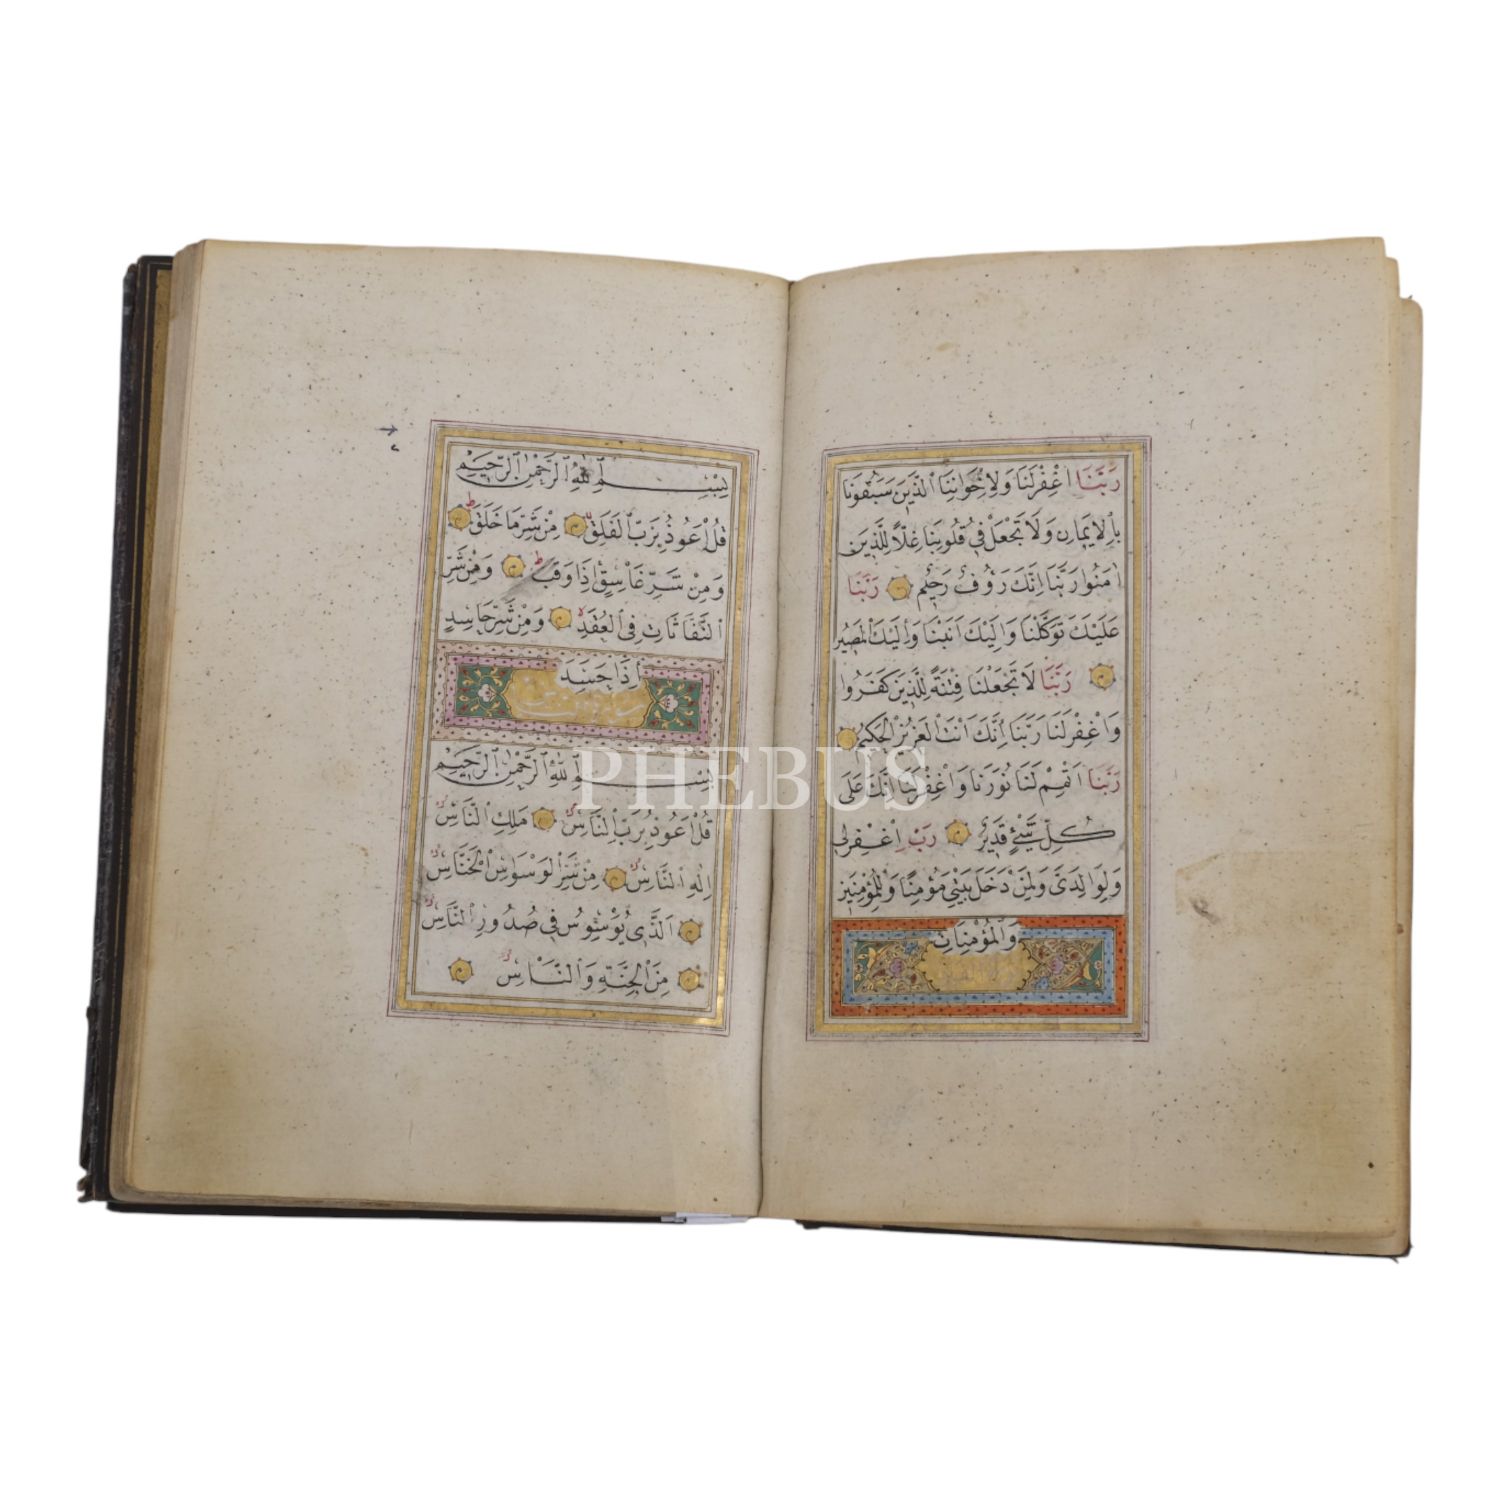 رَبَّنَا اغْفِرْلَنَا وَلِاِخْوَانِنَا الَّذِينَ سَبَقُونَا
بِالْاِيمَانِ وَلَا تَجْعَلْ فِى قُلُوبِنَا غِلًّا لِلَّذِينَ
اٰمَنُوا رَبَّنَا اِنَّكَ رَؤُفٌ رَحِيمٌ رَبَّنَا
عَلَيْكَ تَوَكَّلْنَا وَاِلَيْكَ اَنَبْنَا وَاِلَيْكَ الْمَصِيرُ
رَبَّنَا لَا تَجْعَلْنَا فِتْنَةً لِلَّذِينَ كَفَرُوا
وَاغْفِرْلَنَا رَبَّنَا اِنَّكَ اَنْتَ الْعَزِيزُ الْحَكِيمُ
رَبَّنَا اَتْمِمْ لَنَا نُورَنَا وَاغْفِرْلَنَا اِنَّكَ عَلٰى
كُلِّ شَيْئٍ قَدِيرٌ رَبِّ اغْفِرْلِى
وَلِوَالِدَىَّ وَلِمَنْ دَخَلَ بَيْتِىَ مُؤْمِنًا وَلِلْمُؤْمِنِينَ
وَالْمُؤْمِنَاتِ
بِسْمِ اللّٰهِ الرَّحْمٰنِ الرَّحِيمِ
قُلْ اَعُوذُ بِرَبِّ الْفَلَقِ مِنْ شَرِّ مَا خَلَقَ
وَمِنْ شَرِّ غَاسِقٍ اِذَا وَقَبَ وَمِنْ شَرِّ
النَّفَّاثَاتِ فِى الْعُقَدِ وَمِنْ شَرِّ حَاسِدٍ
اِذَا حَسَدَ
بِسْمِ اللّٰهِ الرَّحْمٰنِ الرَّحِيمِ
قُلْ اَعُوذُ بِرَبِّ النَّاسِ مَلِكِ النَّاسِ
اِلٰهِ النَّاسِ مِنْ شَرِّ الْوَسْوَاسِ الْخَنَّاسِ
الَّذِى يُوَسْوِسُ فِى صُدُورِ النَّاسِ
مِنَ الْجِنَّةِ وَالنَّاسِ
PHEBUS